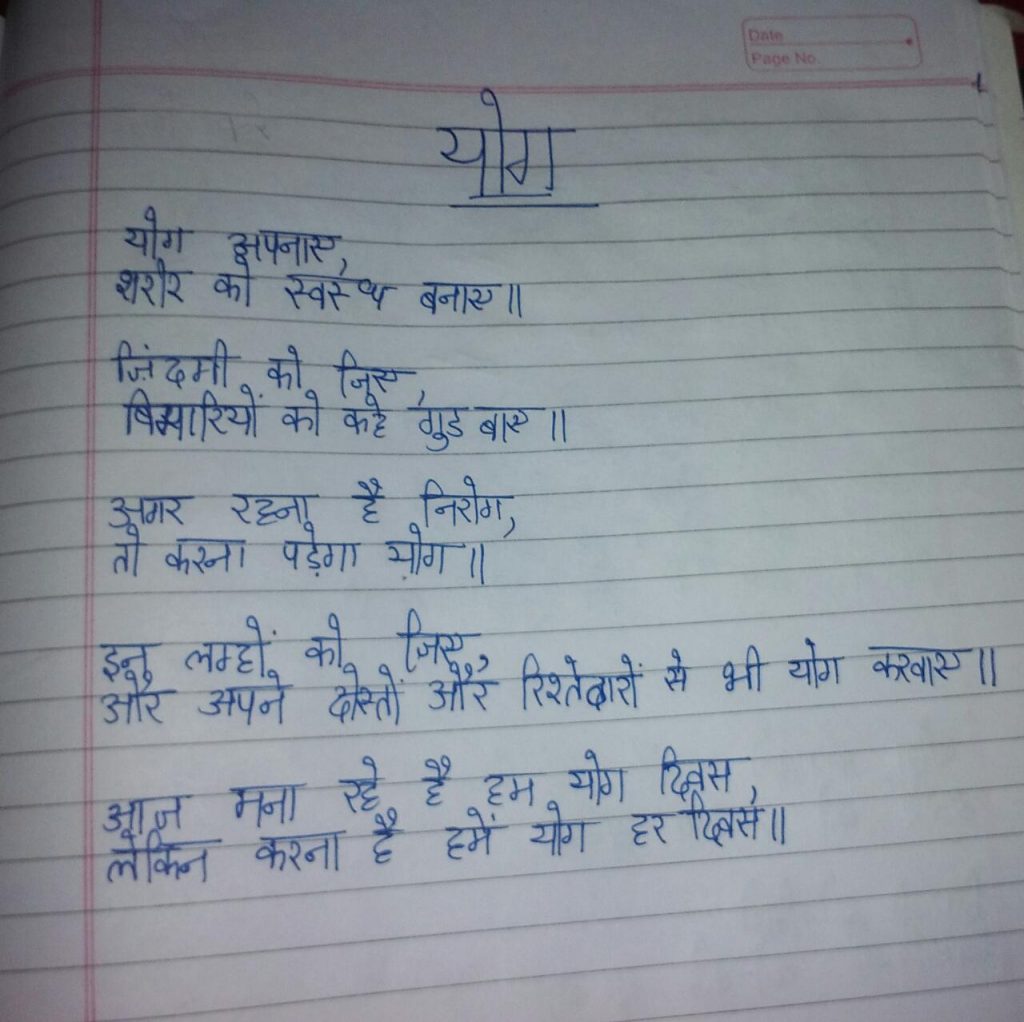 Date
Page No.
योग
योग अपनाए,
शरीर को स्वस्थ बनाए॥
ज़िंदगी को जिए,
बिमारियों को कहे गुड बाए॥
अगर रहना है निरोग,
तो करना पड़ेगा योग॥
इन लम्हों को जिए,
और अपने दोस्तों और रिश्तेदारों से भी योग करवाए॥
आज मना रहे है हम योग दिवस,
लेकिन करना है हमें योग हर दिवस॥